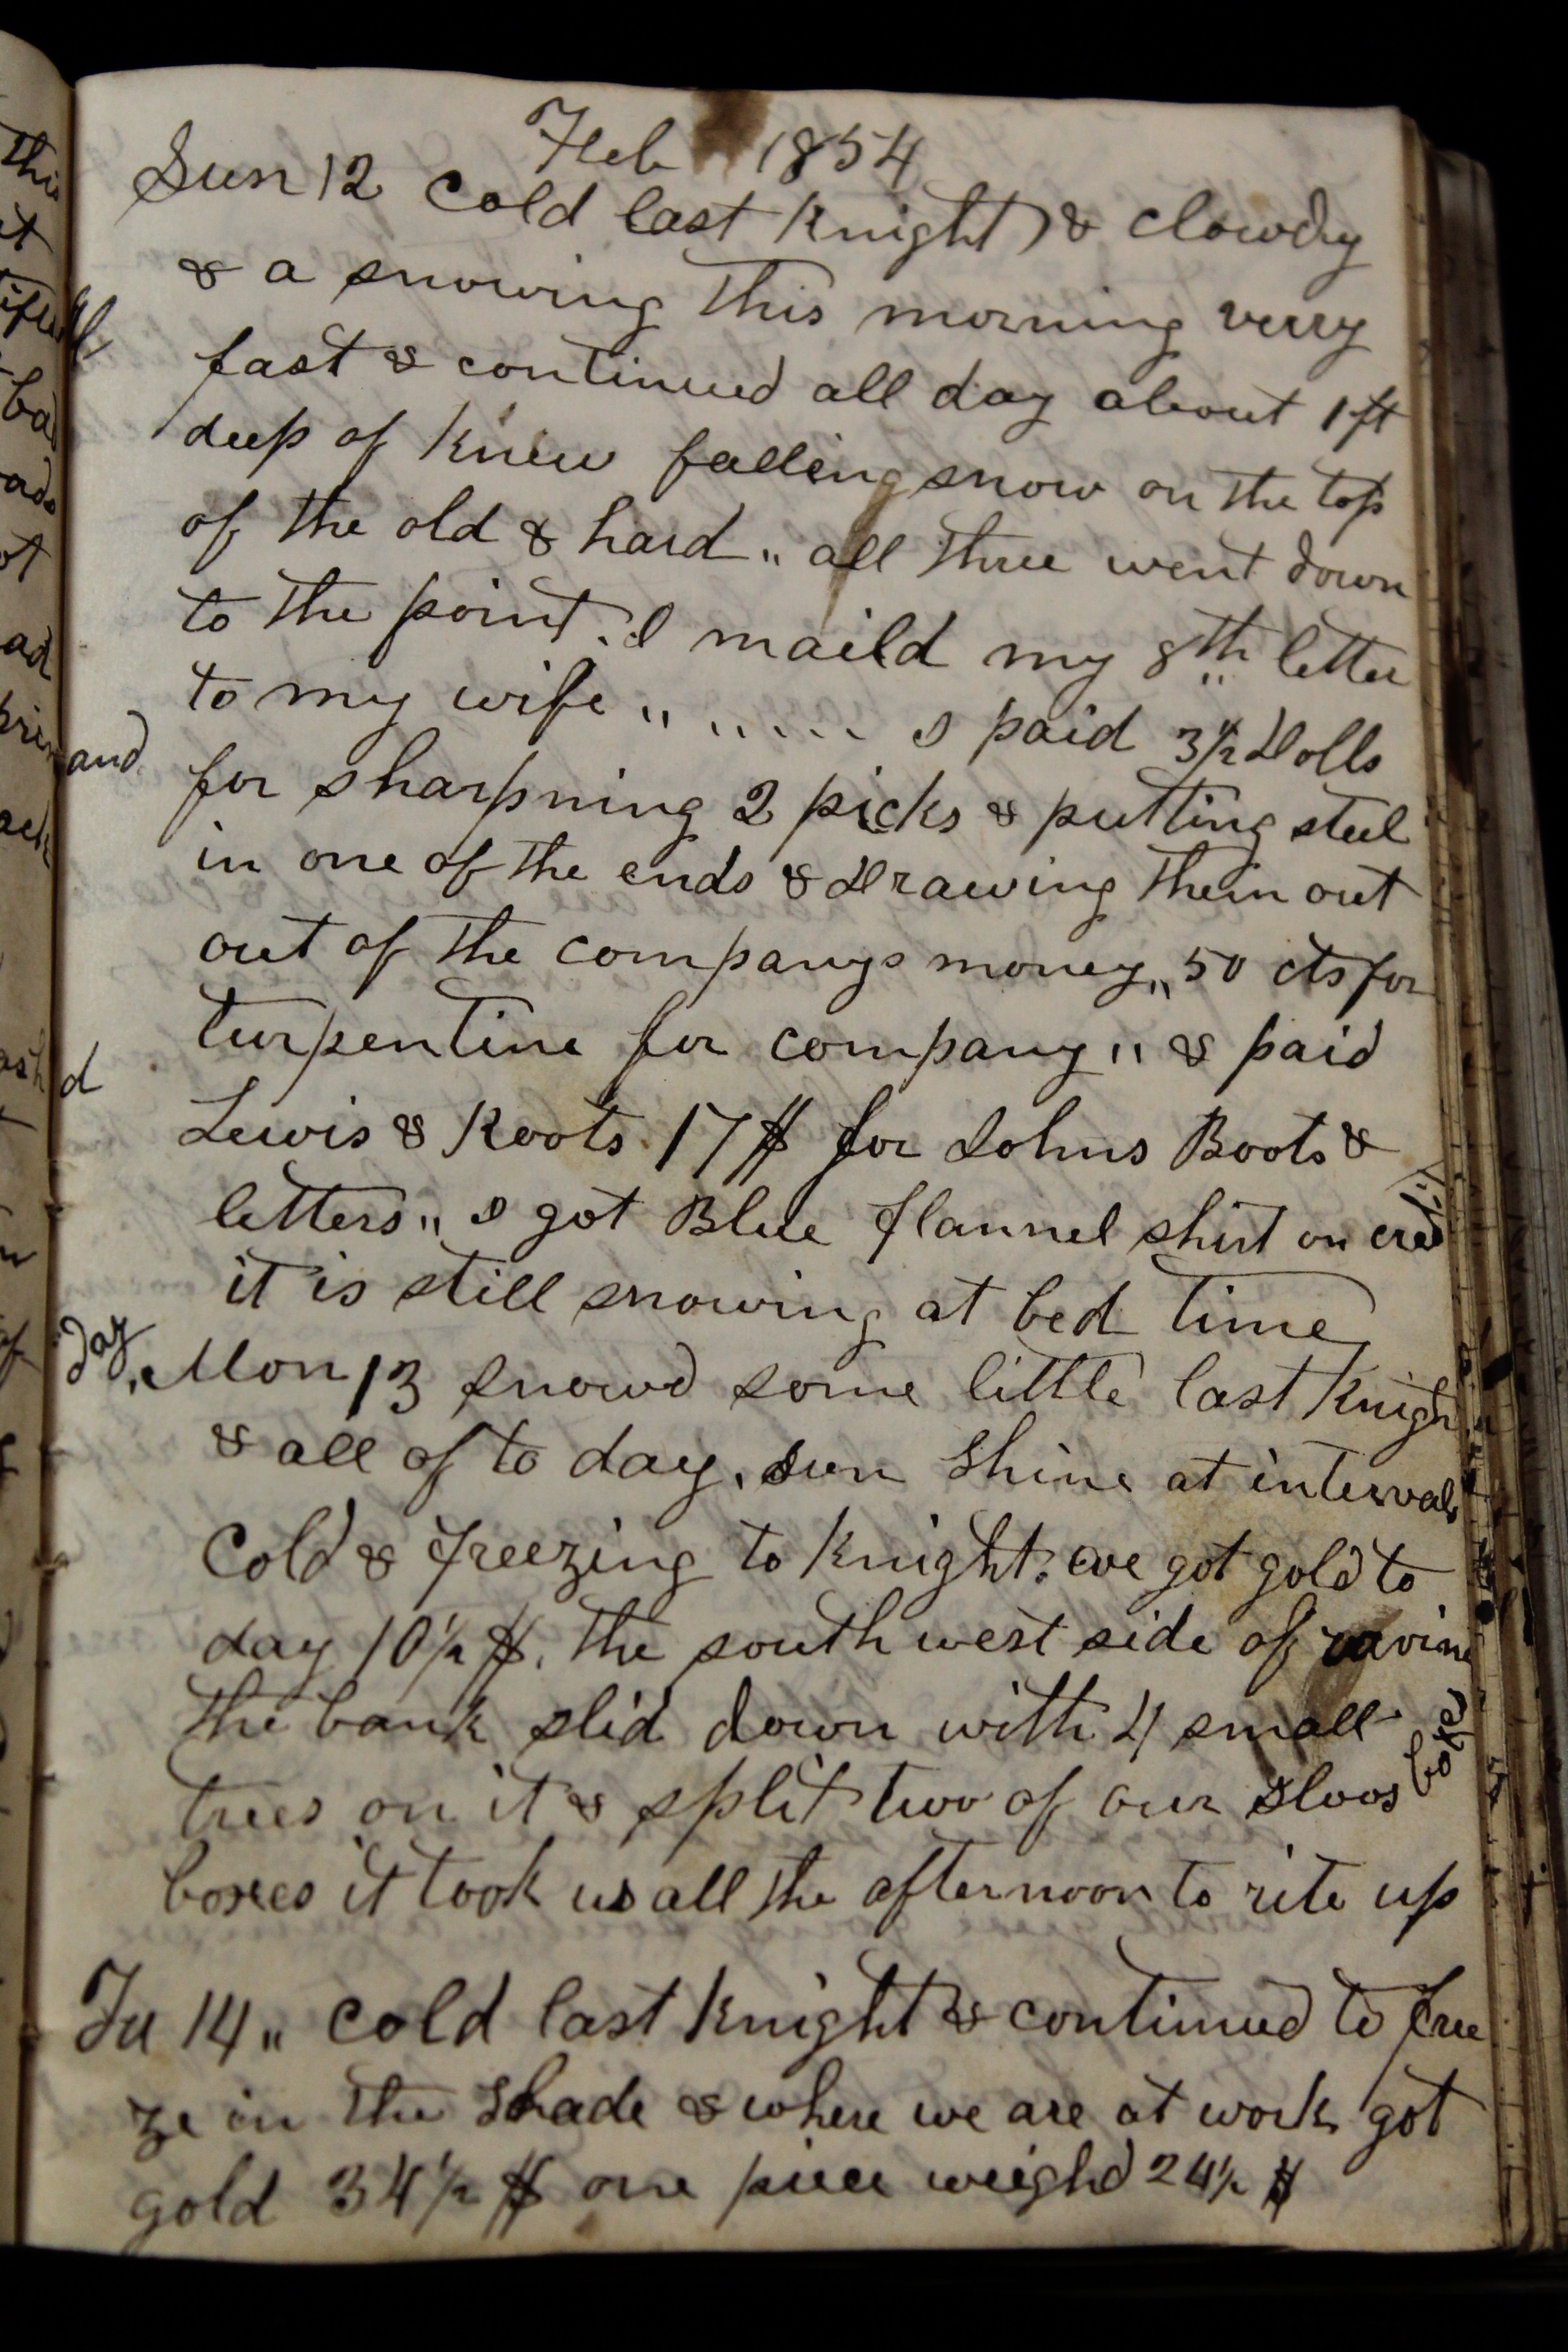 Feb 1854
Sun 12 Cold last Knight & clowdy
& a snowing this morning verry
fast & continued all day about 1 ft
deep of Knew falling snow on the top
of the old & hard " all three went down
to the point. I maild my 8th letter
to my wife " " . . . . I paid 3 1/2 Dolls
for sharpning 2 picks & putting steel
in one of the ends & Drawing them out
out of the companys money " 50 cts for
turpentine for company " & paid
Lewis & Roots 17 $ for Johns Boots &
letters " I got Blue flannel shirt on credit
it is still snowing at bed time
Mon 13 snowd some little last Knigh
& all of to day, sun shine at intervals
Cold & freezing to Knight: we got gold to
day 10 1/2 $. the south west side of ravine
the bank slid down with 4 small
trees on it & split two of our sloos boxes
boxes it took us all the afternoon to rite up
Tu 14 " cold last Knight & continued to free
ze in the shade & where we are at work got
gold 34 1/2 $ one piece weighd 24 1/2 $
and
d
day,